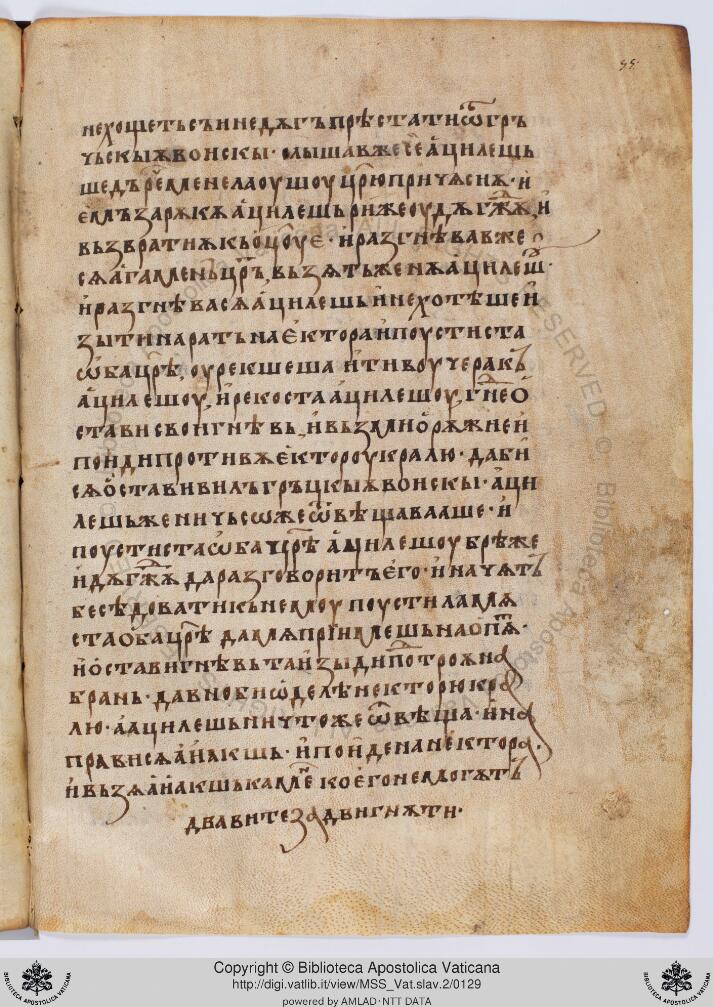 55·
не хощетьсъи недѫгъ прѣстати ѿ гръ
чьскыѫ воискы · слышав же се а҆цилешь
шедъ рече менелаоушоу цр҃ю причѧснѫ · и
емъ за рѫкѫ а҆цилешь риже оудѫ гж҃ѫ, и
възвратиѫ къ ѻц҃оу є · и разгнѣвав же
сѧ а҆гаменъ цр҃ъ, възѧтъ женѫ а҆цилеш ·
и разгнѣвасѧ а҆цилешь и не хотѣше и
зыти на рать на є҆ктора и поустиста
ѡба цр҃ѣ, оурекшеша и тивоуѵеракъ
а҆цилешоу, и рекоста а҆цилешоу, гн҃е ѻ
стави свои гнѣвь, и възми ѻрѫжие и
поиди противѫ є҆ктороу кралю · да би
сѧ ѻставивилъ гръцкыѫ воискы · а҆ци
лешь же ничьсоже ѿвѣщавааше · и
поустиста ѡба цр҃ѣ а҆цилешоу брѣже
идѫ гж҃ѫ да разговоритъ є҆го · и начѧтъ
бесѣдовати къ немоу поустила мѧ
ста ѻба цр҃ѣ да мѧ приимешь на опт҃ѧ ·
и ѻстави гнѣвь та изыди про троѫнѫ
брань · давно би ѡделѣ некторю кра
лю · а а҆цилешь ничтоже ѿвѣща · и на
прависѧ а҆иакшь · и поиде на нектора ·
и възѧ а҆иакшь камє҃ коего не могѫтъ
два витеза двигнѫти ·
Copyright © Biblioteca Apostolica Vaticana
http://digi.vatlib.it/view/MSS_Vat.slav.2/0129
powered by AMLAD · NTT DATA